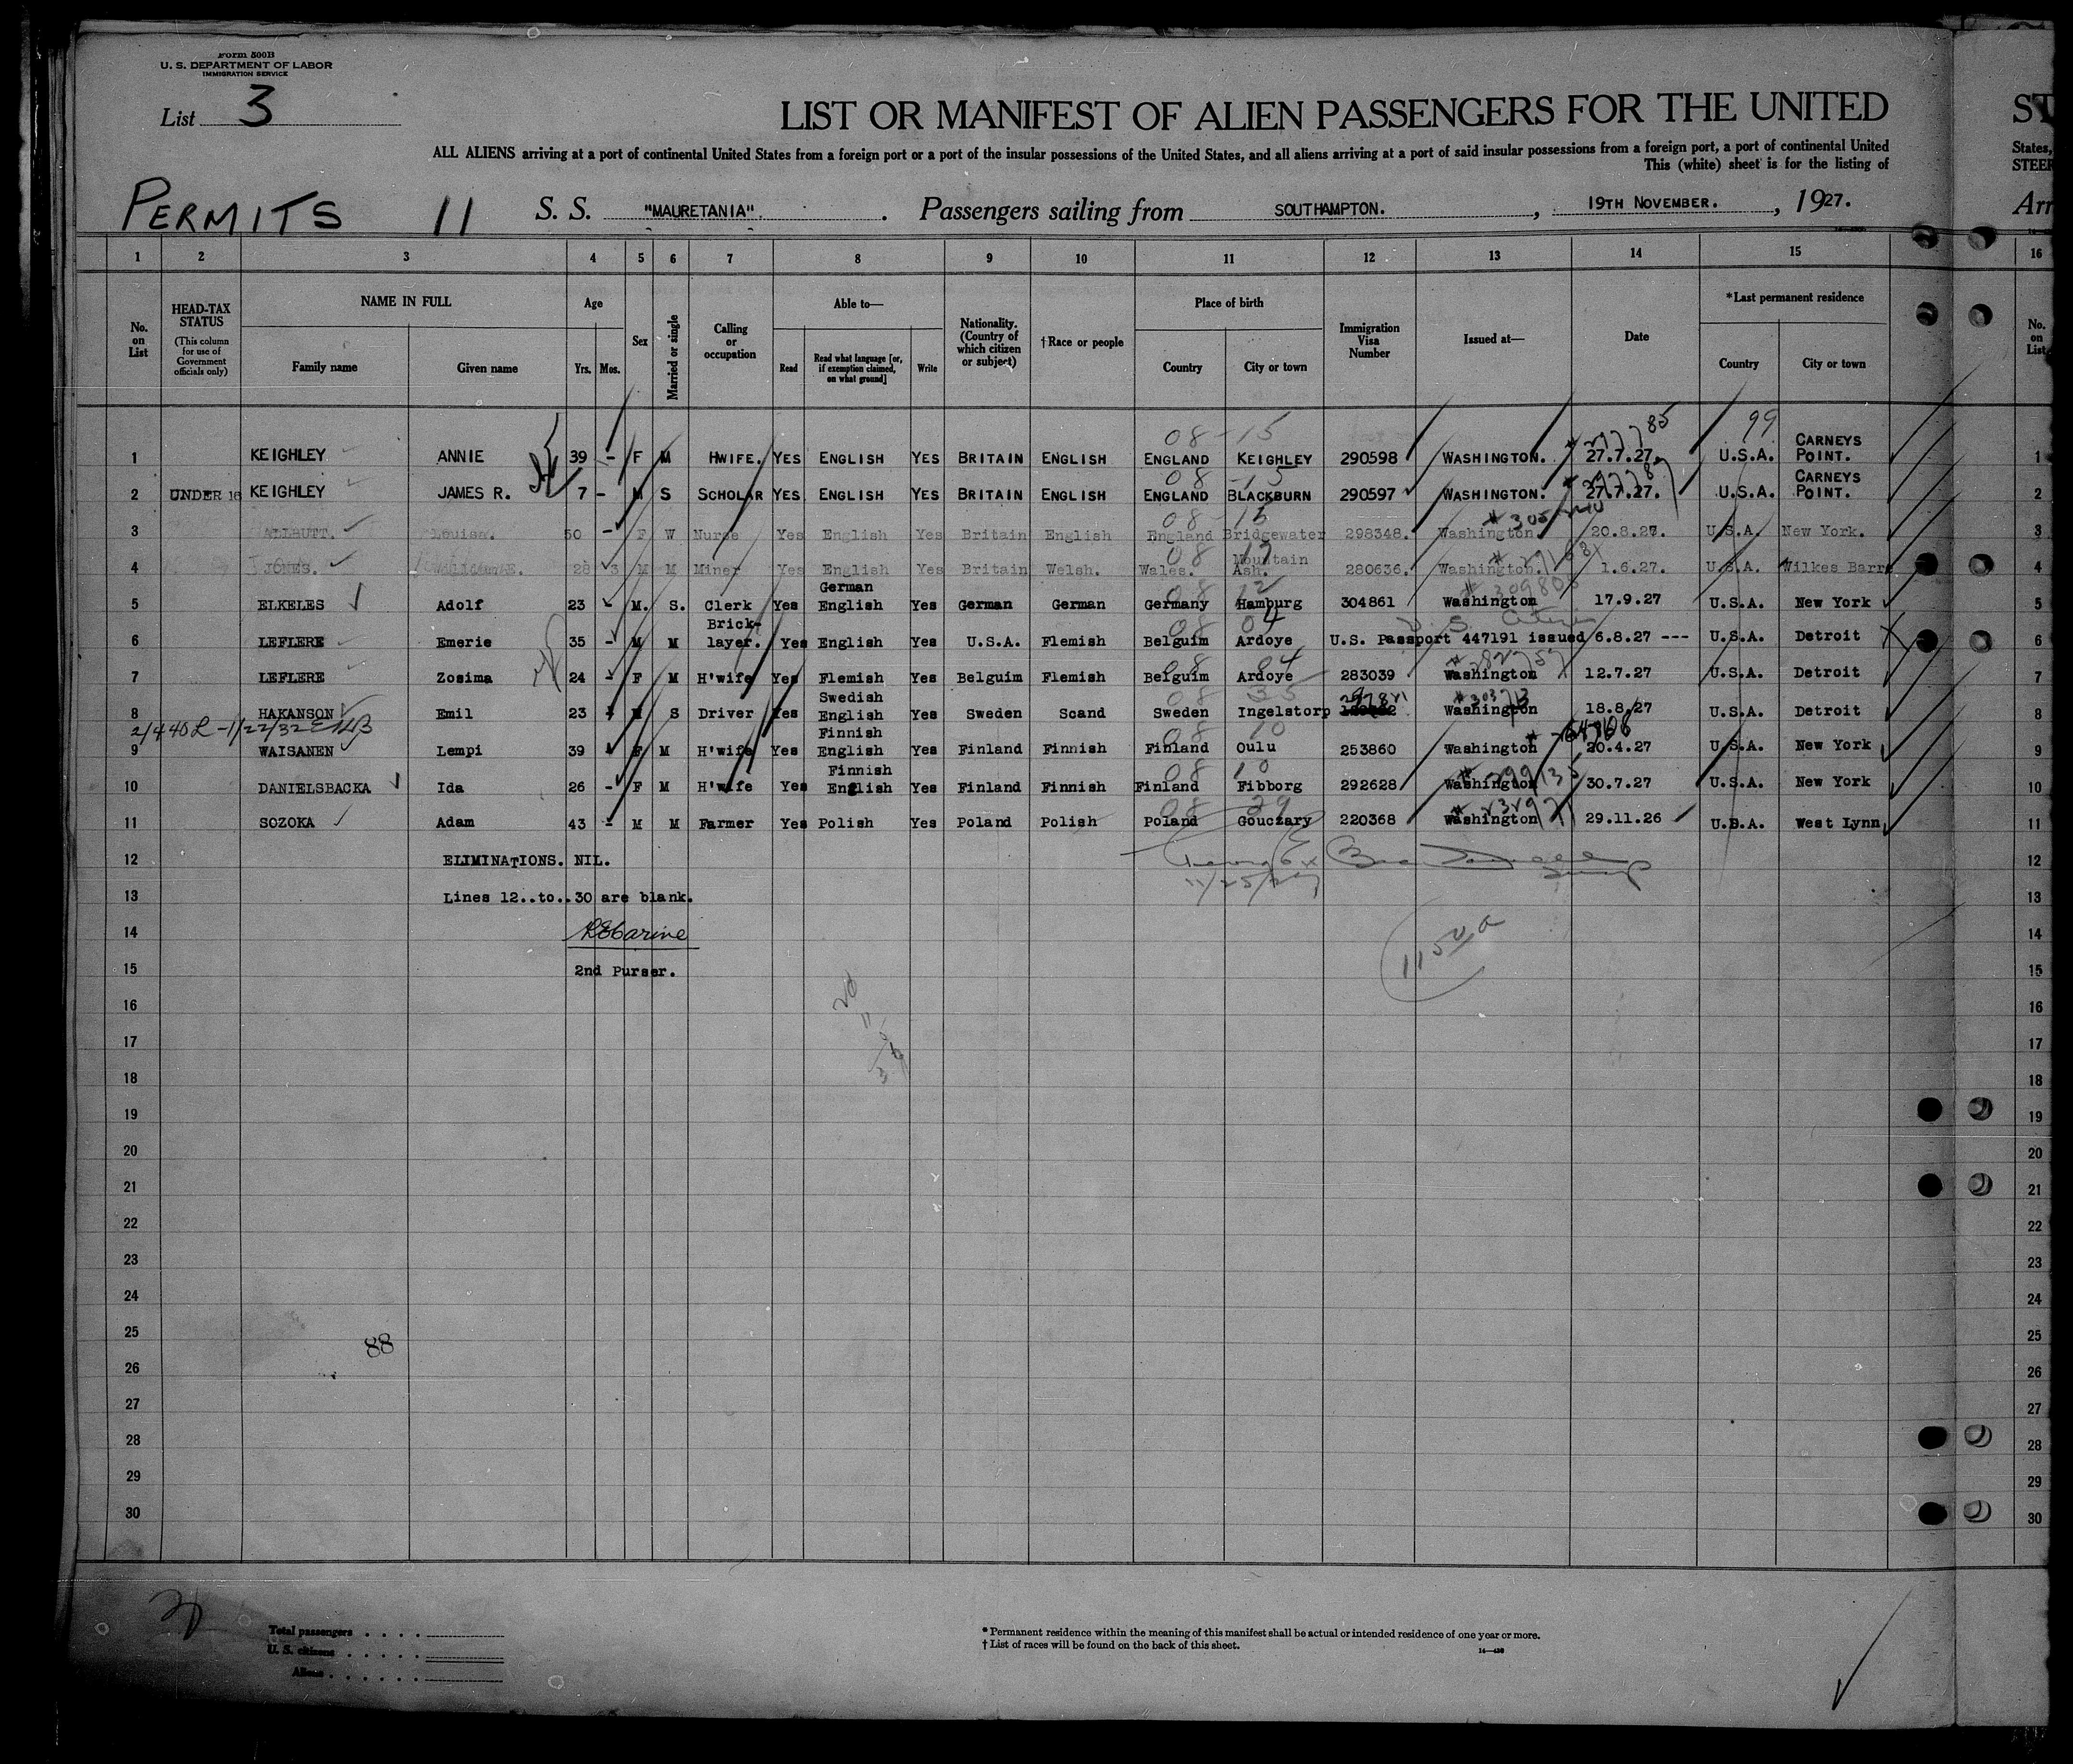 Form 500B
U. S. DEPARTMENT OF LABOR
IMMIGRATION SERVICE
List 3
LIST OR MANIFEST OF ALIEN PASSENGERS FOR THE UNITED ST
ALL ALIENS arriving at a port of continental United States from a foreign port or a port of the insular possessions of the United States, and all aliens arriving at a port of said insular possessions from a foreign port, a port of continental United States,
This (white) sheet is for the listing of STEER
PERMITS 11 S. S. "MAURETANIA". Passengers sailing from SOUTHAMPTON. , 19TH NOVEMBER. , 1927. Arr
1 2 3 4 5 6 7 8 9 10 11 12 13 14 15 16
No. on List
HEAD-TAX STATUS
(This column for use of Government officials only)
NAME IN FULL
Family name Given name
Age
Yrs. Mos.
Sex
Married or single
Calling or occupation
Able to—
Read Read what language [or, if exemption claimed, on what ground] Write
Nationality. (Country of which citizen or subject)
†Race or people
Place of birth
Country City or town
Immigration Visa Number
Issued at—
Date
*Last permanent residence
Country City or town
No. on List
08-15 99
1 KEIGHLEY ANNIE 39 - F M HWIFE. YES ENGLISH YES BRITAIN ENGLISH ENGLAND KEIGHLEY 290598 WASHINGTON. 27.7.27. U.S.A. CARNEYS POINT. 1
08-15
2 UNDER 16 KEIGHLEY JAMES R. 7 - M S SCHOLAR YES ENGLISH YES BRITAIN ENGLISH ENGLAND BLACKBURN 290597 WASHINGTON. 27.7.27. U.S.A. CARNEYS POINT. 2
08-15
3 ALLBUTT. Louisa. 50 - F W Nurse Yes English Yes Britain English England Bridgewater 298348. Washington. 20.8.27. U.S.A. New York. 3
08 17
4 JONES. 28 3 M M Miner Yes English Yes Britain Welsh. Wales. Mountain Ash. 280636. Washington. 1.6.27. U.S.A. Wilkes Barr 4
08 12
5 ELKELES Adolf 23 - M. S. Clerk Yes German English Yes German German Germany Hamburg 304861 Washington 17.9.27 U.S.A. New York 5
08 04 U. S. Citizen
6 LEFLERE Emerie 35 - M M Brick-layer. Yes English Yes U.S.A. Flemish Belguim Ardoye U.S. Passport 447191 issued 6.8.27 --- U.S.A. Detroit 6
08 04
7 LEFLERE Zosima 24 - F M H'wife Yes Flemish Yes Belguim Flemish Belguim Ardoye 283039 Washington 12.7.27 U.S.A. Detroit 7
08 35
8 HAKANSON Emil 23 M S Driver Yes Swedish English Yes Sweden Scand Sweden Ingelstorp Washington 18.8.27 U.S.A. Detroit 8
08 10
9 WAISANEN Lempi 39 F M H'wife Yes Finnish English Yes Finland Finnish Finland Oulu 253860 Washington 20.4.27 U.S.A. New York 9
08 10
10 DANIELSBACKA Ida 26 - F M H'wife Yes Finnish English Yes Finland Finnish Finland Fibborg 292628 Washington 30.7.27 U.S.A. New York 10
08 29
11 SOZOKA Adam 43 - M M Farmer Yes Polish Yes Poland Polish Poland Gouczary 220368 Washington 29.11.26 U.S.A. West Lynn 11
12 ELIMINATIONS. NIL. 12
11/25/27
13 Lines 12..to..30 are blank. 13
14 14
15 2nd Purser. 15
16 16
17 17
18 18
19 19
20 20
21 21
22 22
23 23
24 24
25 25
88
26 26
27 27
28 28
29 29
30 30
Total passengers
U. S. citizens
Aliens
* Permanent residence within the meaning of this manifest shall be actual or intended residence of one year or more.
† List of races will be found on the back of this sheet.